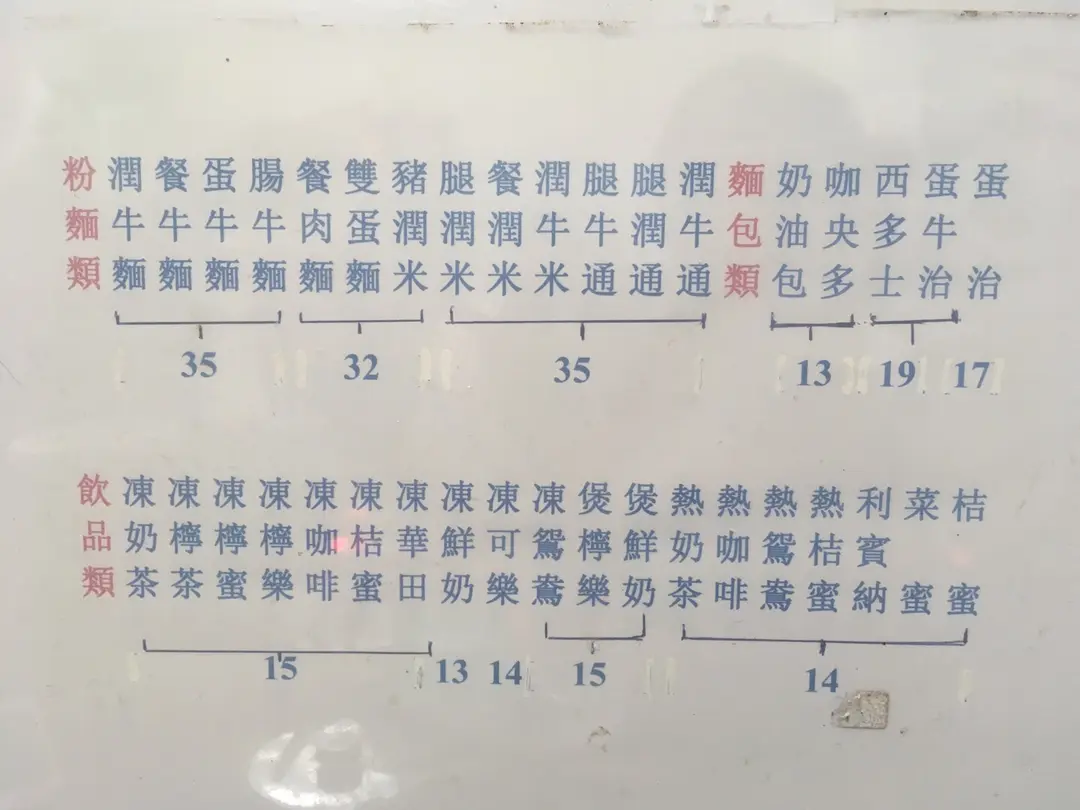 粉麵類
潤牛麵
餐牛麵
蛋牛麵
腸牛麵
餐肉麵
雙蛋麵
豬潤米
腿潤米
餐潤米
潤牛米
腿牛通
腿潤通
潤牛通
麵包類
奶油包
咖央多
西多士
蛋牛治
蛋治
35 32 35 13 19 17
飲品類
凍奶茶
凍檸茶
凍檸蜜
凍檸樂
凍咖啡
凍桔蜜
凍華田
凍鮮奶
凍可樂
凍鴛鴦
煲檸樂
煲鮮奶
熱奶茶
熱咖啡
熱鴛鴦
熱桔蜜
利賓納
菜蜜
桔蜜
15 13 14 15 14